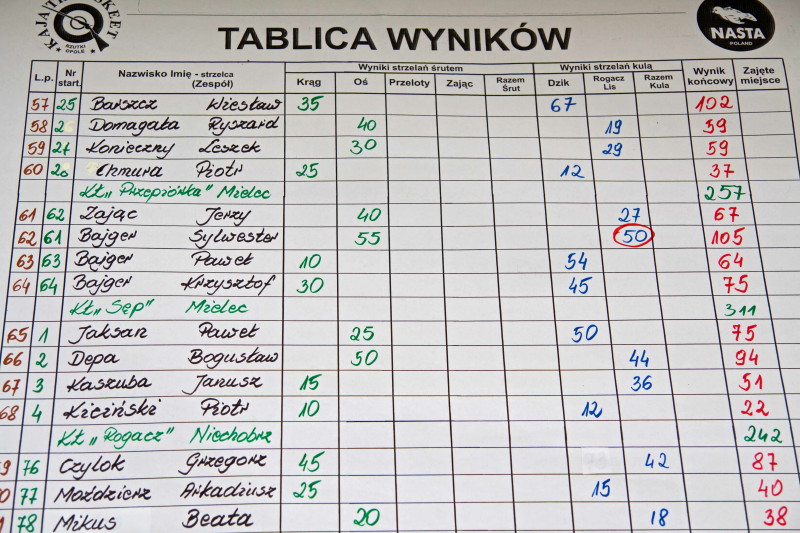 TABLICA WYNIKÓW
RZUTKI OPOLE
NASTA
POLAND
L.p. Nr start. Nazwisko Imię - strzelca (Zespół) Wyniki strzelań śrutem Wyniki strzelań kulą Wynik końcowy Zajęte miejsce
Krąg Oś Przeloty Zając Razem Śrut Dzik Rogacz Lis Razem Kula
57 25 Barszcz Wiesław 35 67 102
58 Domagała Ryszard 40 19 59
59 Konieczny Leszek 30 29 59
60 Chmura Piotr 25 12 37
KŁ „Przepiórka" Mielec 257
61 62 Zając Jerzy 40 27 67
62 61 Bajger Sylwester 55 50 105
63 63 Bajger Paweł 10 54 64
64 64 Bajger Krzysztof 30 45 75
KŁ „Sęp" Mielec 311
65 1 Jaksan Paweł 25 50 75
66 2 Depa Bogusław 50 44 94
67 3 Kaszuba Janusz 15 36 51
68 4 Kiciński Piotr 10 12 22
KŁ „Rogacz" Niechobrz 242
9 76 Czylok Grzegorz 45 42 87
0 77 Moździerz Arkadiusz 25 15 40
78 Mikus Beata 20 18 38